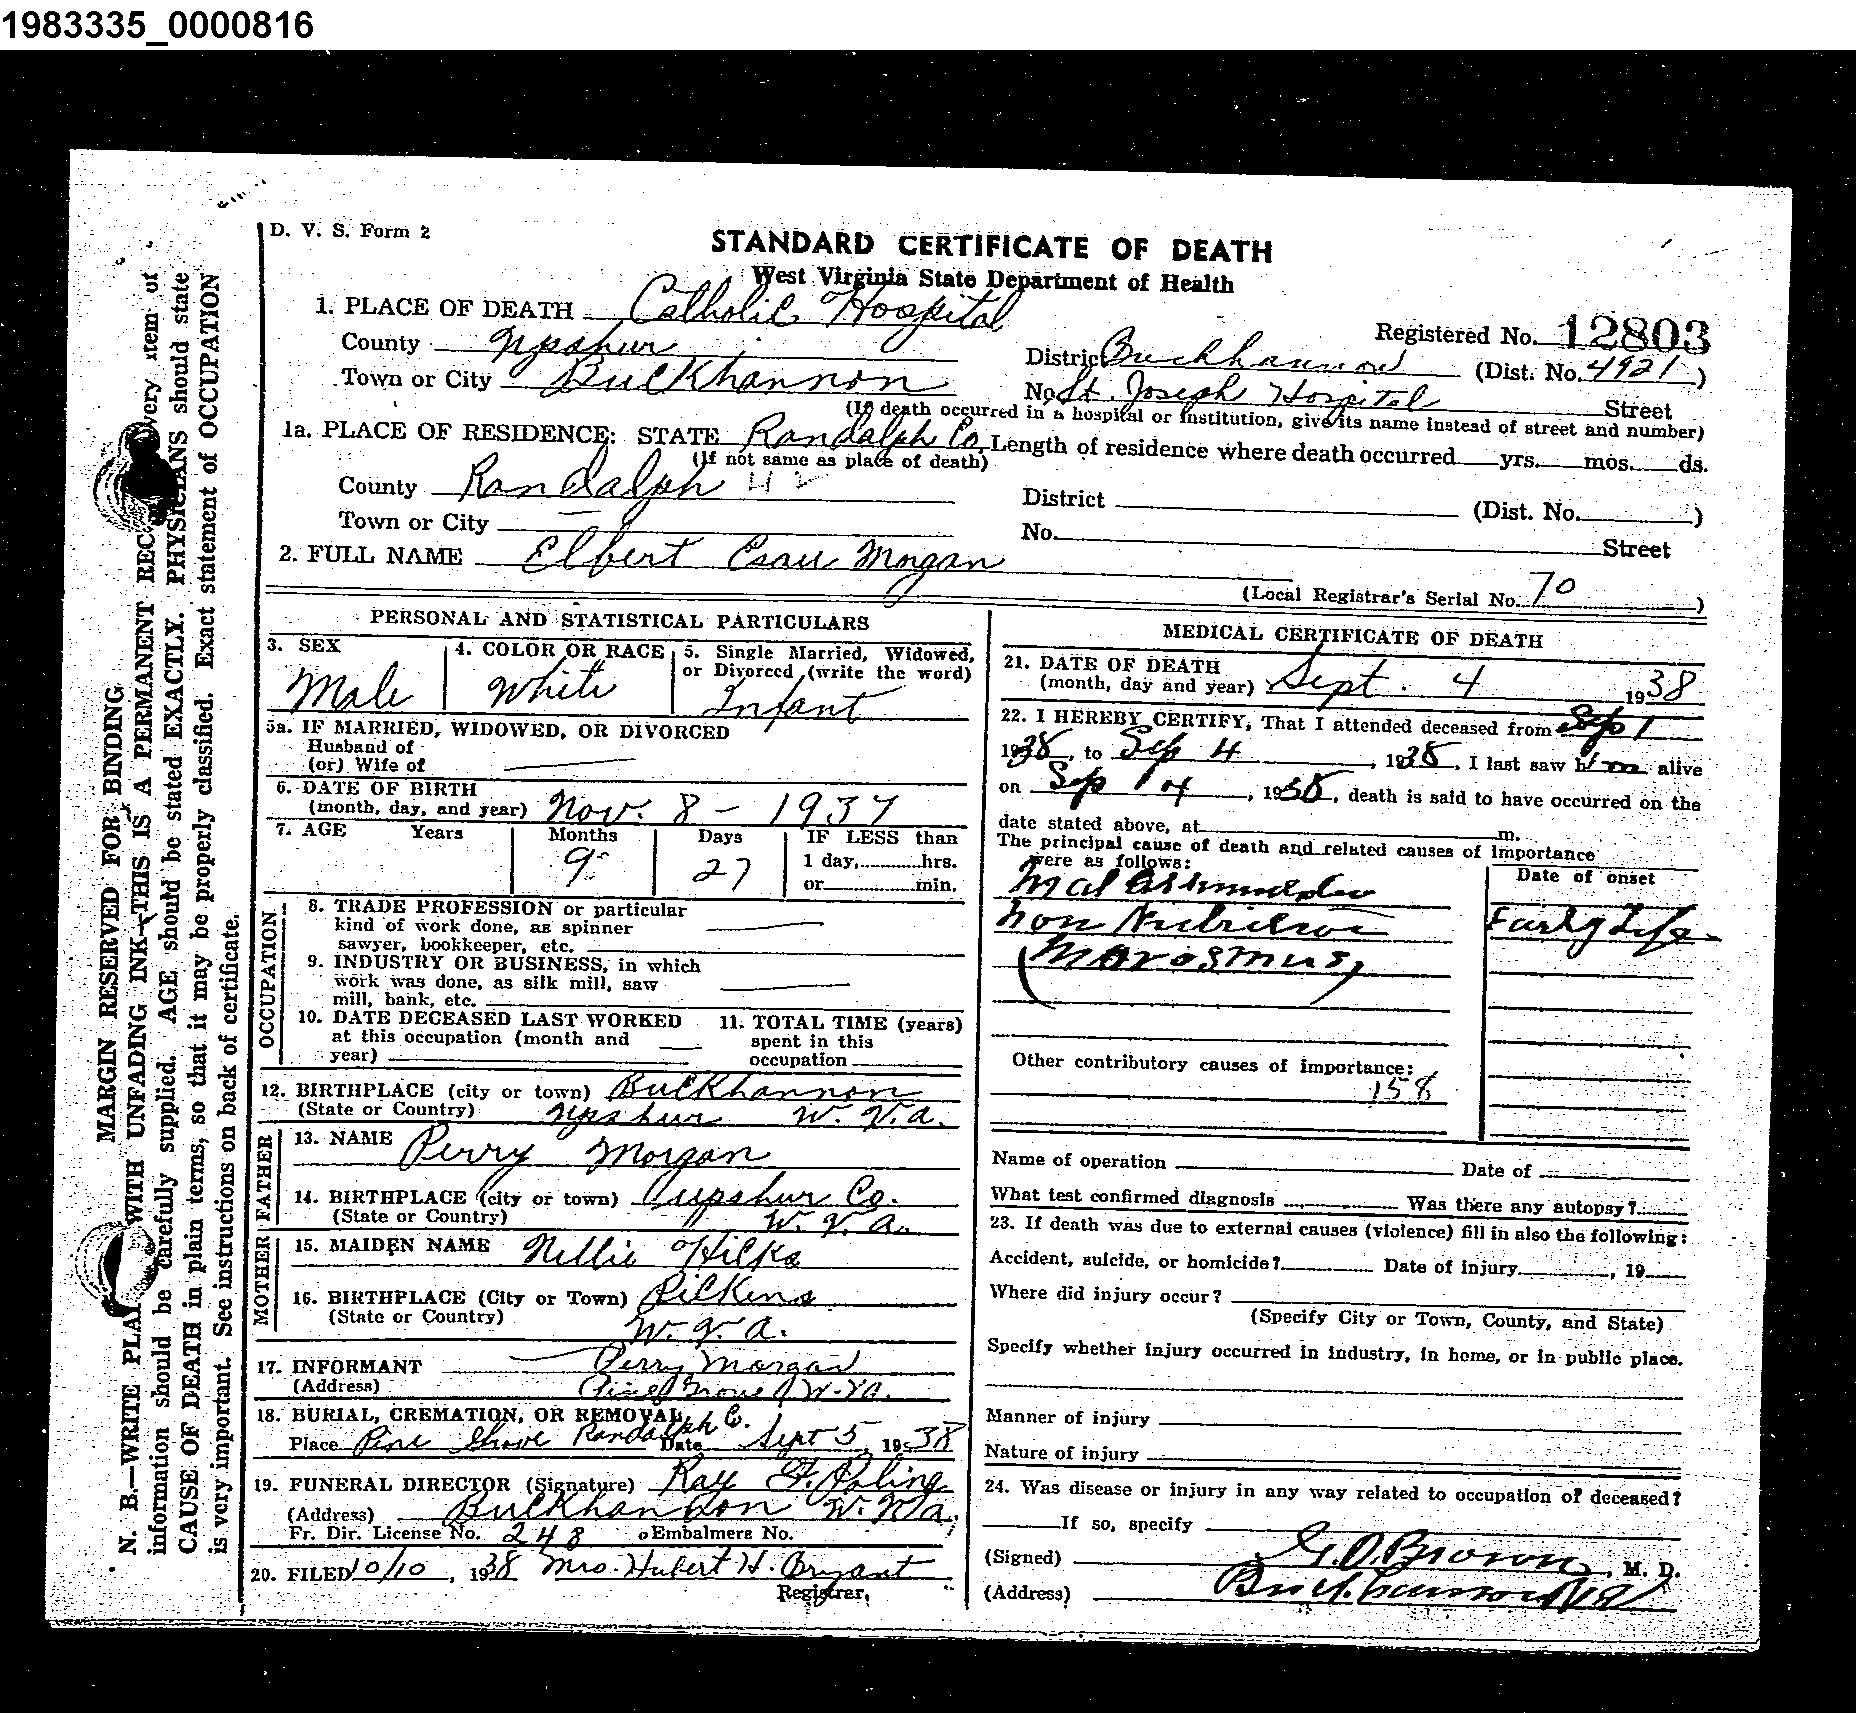 1983335_0000816
D. V. S. Form 2
STANDARD CERTIFICATE OF DEATH
West Virginia State Department of Health
1. PLACE OF DEATH Catholic Hospital
Registered No. 12803
County Upshur
District Buckhannon (Dist. No. 4921)
Town or City Buckhannon
No. St. Joseph Hospital Street
(If death occurred in a hospital or institution, give its name instead of street and number)
1a. PLACE OF RESIDENCE: STATE Randalph Co. Length of residence where death occurred yrs. mos. ds.
(If not same as place of death)
County Randalph 42
District (Dist. No. )
Town or City
No. Street
2. FULL NAME Elbert Esau Morgan
(Local Registrar's Serial No. 70 )
PERSONAL AND STATISTICAL PARTICULARS
3. SEX Male
4. COLOR OR RACE White
5. Single Married, Widowed, or Divorced (write the word) Infant
5a. IF MARRIED, WIDOWED, OR DIVORCED
Husband of
(or) Wife of
6. DATE OF BIRTH
(month, day, and year) Nov. 8 - 1937
7. AGE Years Months Days IF LESS than
9 27 1 day, hrs.
or min.
OCCUPATION
8. TRADE PROFESSION or particular
kind of work done, as spinner
sawyer, bookkeeper, etc.
9. INDUSTRY OR BUSINESS, in which
work was done, as silk mill, saw
mill, bank, etc.
10. DATE DECEASED LAST WORKED
at this occupation (month and
year)
11. TOTAL TIME (years)
spent in this
occupation
12. BIRTHPLACE (city or town) Buckhannon
(State or Country) Upshur W. V.a.
FATHER
13. NAME Perry Morgan
14. BIRTHPLACE (city or town) Upshur Co.
(State or Country) W. V. a.
MOTHER
15. MAIDEN NAME Nellie Hilks
16. BIRTHPLACE (City or Town) Pilkens
(State or Country) W. V. a.
17. INFORMANT Perry Morgan
(Address) Pine Grove W. Va.
18. BURIAL, CREMATION, OR REMOVAL
Place Pine Grove Randalph Co. Date Sept 5, 1938
19. FUNERAL DIRECTOR (Signature) Ray F. Poling
(Address) Buckhannon W. Va.
Fr. Dir. License No. 248 Embalmers No.
20. FILED 10/10, 1938 Mrs. Hubert H. Bryant
Registrar.
MEDICAL CERTIFICATE OF DEATH
21. DATE OF DEATH
(month, day and year) Sept. 4 1938
22. I HEREBY CERTIFY, That I attended deceased from Sep 1
1938, to Sep 4, 1938, I last saw him alive
on Sep 4, 1938, death is said to have occurred on the
date stated above, at m.
The principal cause of death and related causes of importance
were as follows:
Date of onset
Non Nutrition Early Life
(Marasmus)
Other contributory causes of importance:
158
Name of operation Date of
What test confirmed diagnosis Was there any autopsy?
23. If death was due to external causes (violence) fill in also the following:
Accident, suicide, or homicide? Date of injury , 19
Where did injury occur?
(Specify City or Town, County, and State)
Specify whether injury occurred in industry, in home, or in public place.
Manner of injury
Nature of injury
24. Was disease or injury in any way related to occupation of deceased?
If so, specify
(Signed) G. O. Brown, M. D.
(Address) Buckhannon W Va
MARGIN RESERVED FOR BINDING
N. B.—WRITE PLAI WITH UNFADING INK—THIS IS A PERMANENT REC very item of
information should be carefully supplied. AGE should be stated EXACTLY. PHYSICIANS should state
CAUSE OF DEATH in plain terms, so that it may be properly classified. Exact statement of OCCUPATION
is very important. See instructions on back of certificate.